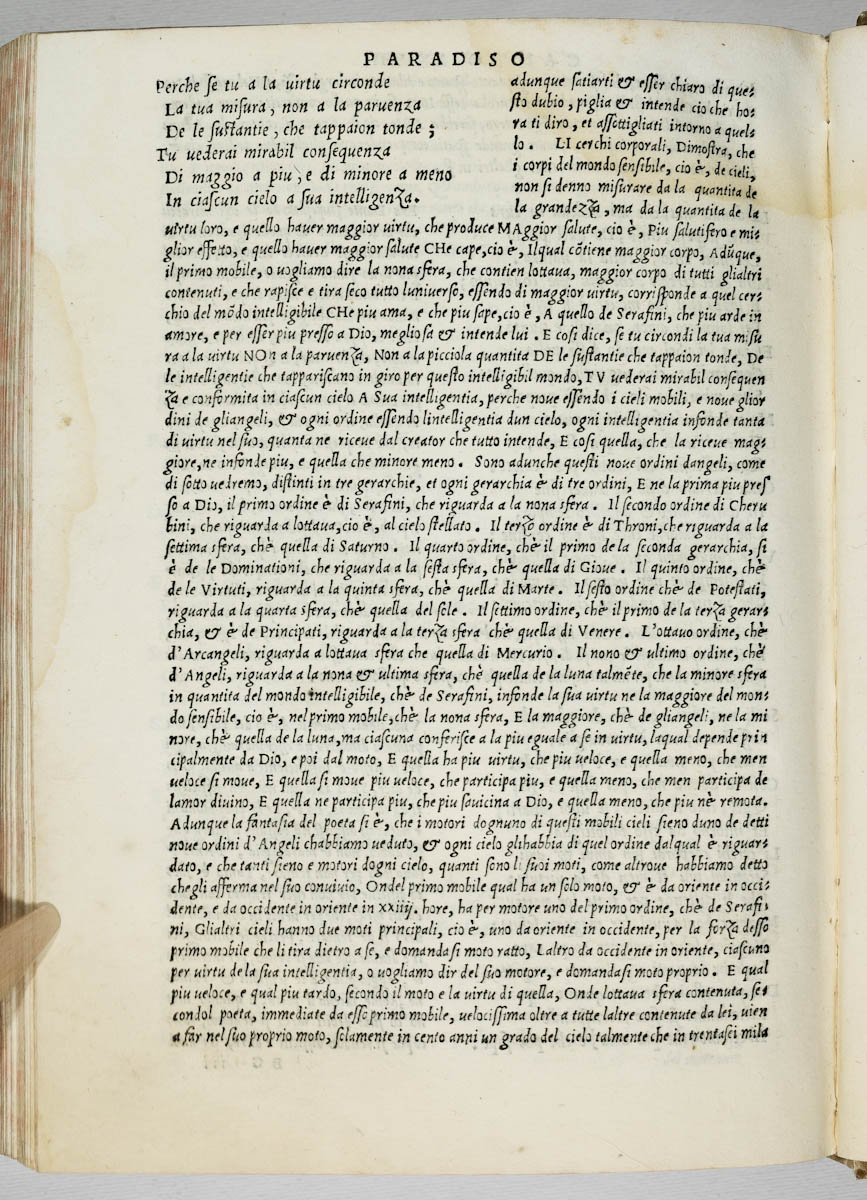 PARADISO
Perche se tu a la uirtu circonde
La tua misura, non a la paruenza
De le sustantie, che tappaion tonde;
Tu uederai mirabil consequenza
Di maggio a piu, e di minore a meno
In ciascun cielo a sua intelligenza.
adunque satiarti & esser chiaro di que-
sto dubio, piglia & intende cio che ho-
ra ti diro, et assottigliati intorno a quel-
lo. LI cerchi corporali, Dimostra, che
i corpi del mondo sensibile, cio è, de cieli,
non si denno misurare da la quantita de
la grandezza, ma da la quantita de la
uirtu loro, e quello hauer maggior uirtu, che produce MAggior salute, cio è, Piu salutifero e mi-
glior effetto, e quello hauer maggior salute CHe cape, cio è, Ilqual cõtiene maggior corpo, Adũque,
il primo mobile, o uogliamo dire la nona sfera, che contien lottaua, maggior corpo di tutti glialtri
contenuti, e che rapisce e tira seco tutto luniuerso, essendo di maggior uirtu, corrisponde a quel cer-
chio del mõdo intelligibile CHe piu ama, e che piu sape, cio è, A quello de Serafini, che piu arde in
amore, e per esser piu presso a Dio, meglio sa & intende lui. E cosi dice, se tu circondi la tua misu
ra a la uirtu NOn a la paruenza, Non a la picciola quantita DE le sustantie che tappaion tonde, De
le intelligentie che tappariscano in giro per questo intelligibil mondo, TV uederai mirabil consequen
za e conformita in ciascun cielo A Sua intelligentia, perche noue essendo i cieli mobili, e noue glior
dini de gliangeli, & ogni ordine essendo lintelligentia dun cielo, ogni intelligentia infonde tanta
di uirtu nel suo, quanta ne riceue dal creator che tutto intende, E cosi quella, che la riceue mag-
giore, ne infonde piu, e quella che minore meno. Sono adunche questi noue ordini dangeli, come
di sotto uedremo, distinti in tre gerarchie, et ogni gerarchia è di tre ordini, E ne la prima piu pres
so a Dio, il primo ordine è di Serafini, che riguarda a la nona sfera. Il secondo ordine di Cheru
bini, che riguarda a lottaua, cio è, al cielo stellato. Il terzo ordine è di Throni, che riguarda a la
settima sfera, chè quella di Saturno. Il quarto ordine, chè il primo de la seconda gerarchia, si
è de le Dominationi, che riguarda a la sesta sfera, chè quella di Gioue. Il quinto ordine, chè
de le Virtuti, riguarda a la quinta sfera, chè quella di Marte. Il sesto ordine chè de Potestati,
riguarda a la quarta sfera, chè quella del sole. Il settimo ordine, chè il primo de la terza gerar-
chia, & è de Principati, riguarda a la terza sfera chè quella di Venere. L'ottauo ordine, chè
d'Arcangeli, riguarda a lottaua sfera che quella di Mercurio. Il nono & ultimo ordine, chè
d'Angeli, riguarda a la nona & ultima sfera, chè quella de la luna talmẽte, che la minore sfera
in quantita del mondo intelligibile, chè de Serafini, infonde la sua uirtu ne la maggiore del mon-
do sensibile, cio è, nel primo mobile, chè la nona sfera, E la maggiore, chè de gliangeli, ne la mi
nore, chè quella de la luna, ma ciascuna conferisce a la piu eguale a se in uirtu, laqual depende prin
cipalmente da Dio, e poi dal moto, E quella ha piu uirtu, che piu ueloce, e quella meno, che men
ueloce si moue, E quella si moue piu ueloce, che participa piu, e quella meno, che men participa de
lamor diuino, E quella ne participa piu, che piu sauicina a Dio, e quella meno, che piu nè remota.
Adunque la fantasia del poeta si è, che i motori dognuno di questi mobili cieli sieno duno de detti
noue ordini d'Angeli chabbiamo ueduto, & ogni cielo glihabbia di quel ordine dalqual è riguar-
dato, e che tanti sieno e motori dogni cielo, quanti sono li suoi moti, come altroue habbiamo detto
chegli afferma nel suo conuiuio, Ondel primo mobile qual ha un solo moto, & è da oriente in occi-
dente, e da occidente in oriente in xxiiij. hore, ha per motore uno del primo ordine, chè de Serafi-
ni, Glialtri cieli hanno due moti principali, cio è, uno da oriente in occidente, per la forza desso
primo mobile che li tira dietro a se, e domandasi moto ratto, Laltro da occidente in oriente, ciascuno
per uirtu de la sua intelligentia, o uogliamo dir del suo motore, e domandasi moto proprio. E qual
piu ueloce, e qual piu tardo, secondo il moto e la uirtu di quella, Onde lottaua sfera contenuta, se-
condol poeta, immediate da esso primo mobile, uelocissima oltre a tutte laltre contenute da lei, uien
a far nel suo proprio moto, solamente in cento anni un grado del cielo talmente che in trentasei mila